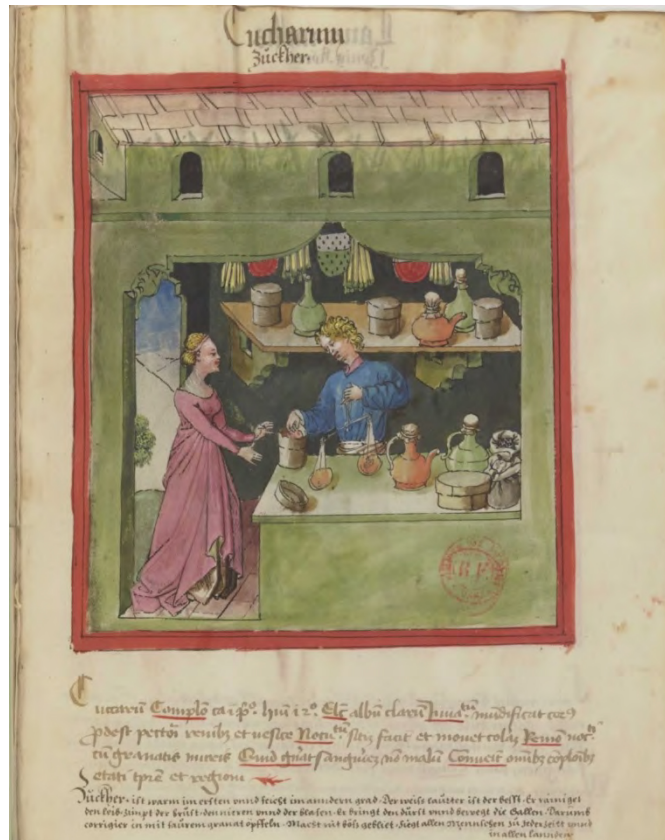 Cucharum
Zuckher.
B.F.
Cuccarū Complō ca i pº. hūi i 2º. Elc̄ albū clarū Iuuatū mūdificat corꝰ
pdest pectori renibꝫ et uesice Nocutū sitȳ facit et mouet colāȝ Remo nocti
cū granatis muzis Quid gn̄at sanguinēȝ nō malum Conueit omibꝫ cōplōibꝫ
Etati tp̄ri et regioni
Zuckher. ist warm im ersten vnnd feicht im anndern grad. Der weis lautter ist der besst. Er rainiget
den leib. Zimpt der brüst. den nieren vnnd der blasen. Er bringt den dürst vnnd bewegt die Gallen. Darumb
corrigier in mit saürem granat öpffeln. Macht nit böß geblüet. Fuegt allen Mennschen zu Jeder zeitt vnnd
in allen lanndern